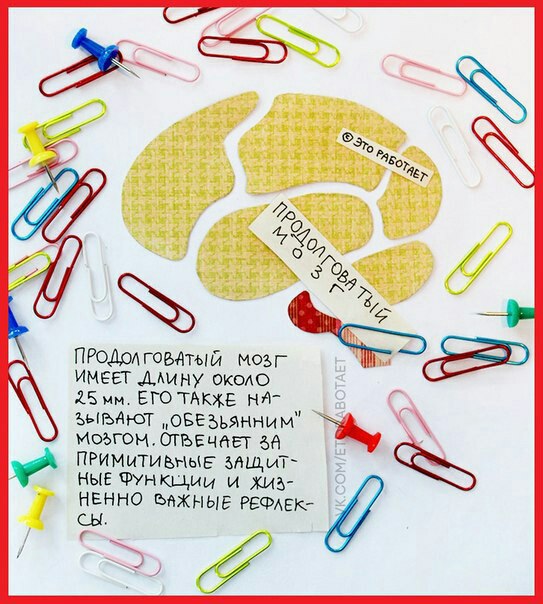 © ЭТО РАБОТАЕТ
ПРОДОЛГОВАТЫЙ
МОЗГ
ПРОДОЛГОВАТЫЙ МОЗГ
ИМЕЕТ ДЛИНУ ОКОЛО
25 мм. ЕГО ТАКЖЕ НА-
ЗЫВАЮТ „ОБЕЗЬЯННИМ"
МОЗГОМ. ОТВЕЧАЕТ ЗА
ПРИМИТИВНЫЕ ЗАЩИТ-
НЫЕ ФУНКЦИИ И ЖИЗ-
НЕННО ВАЖНЫЕ РЕФЛЕК-
СЫ.